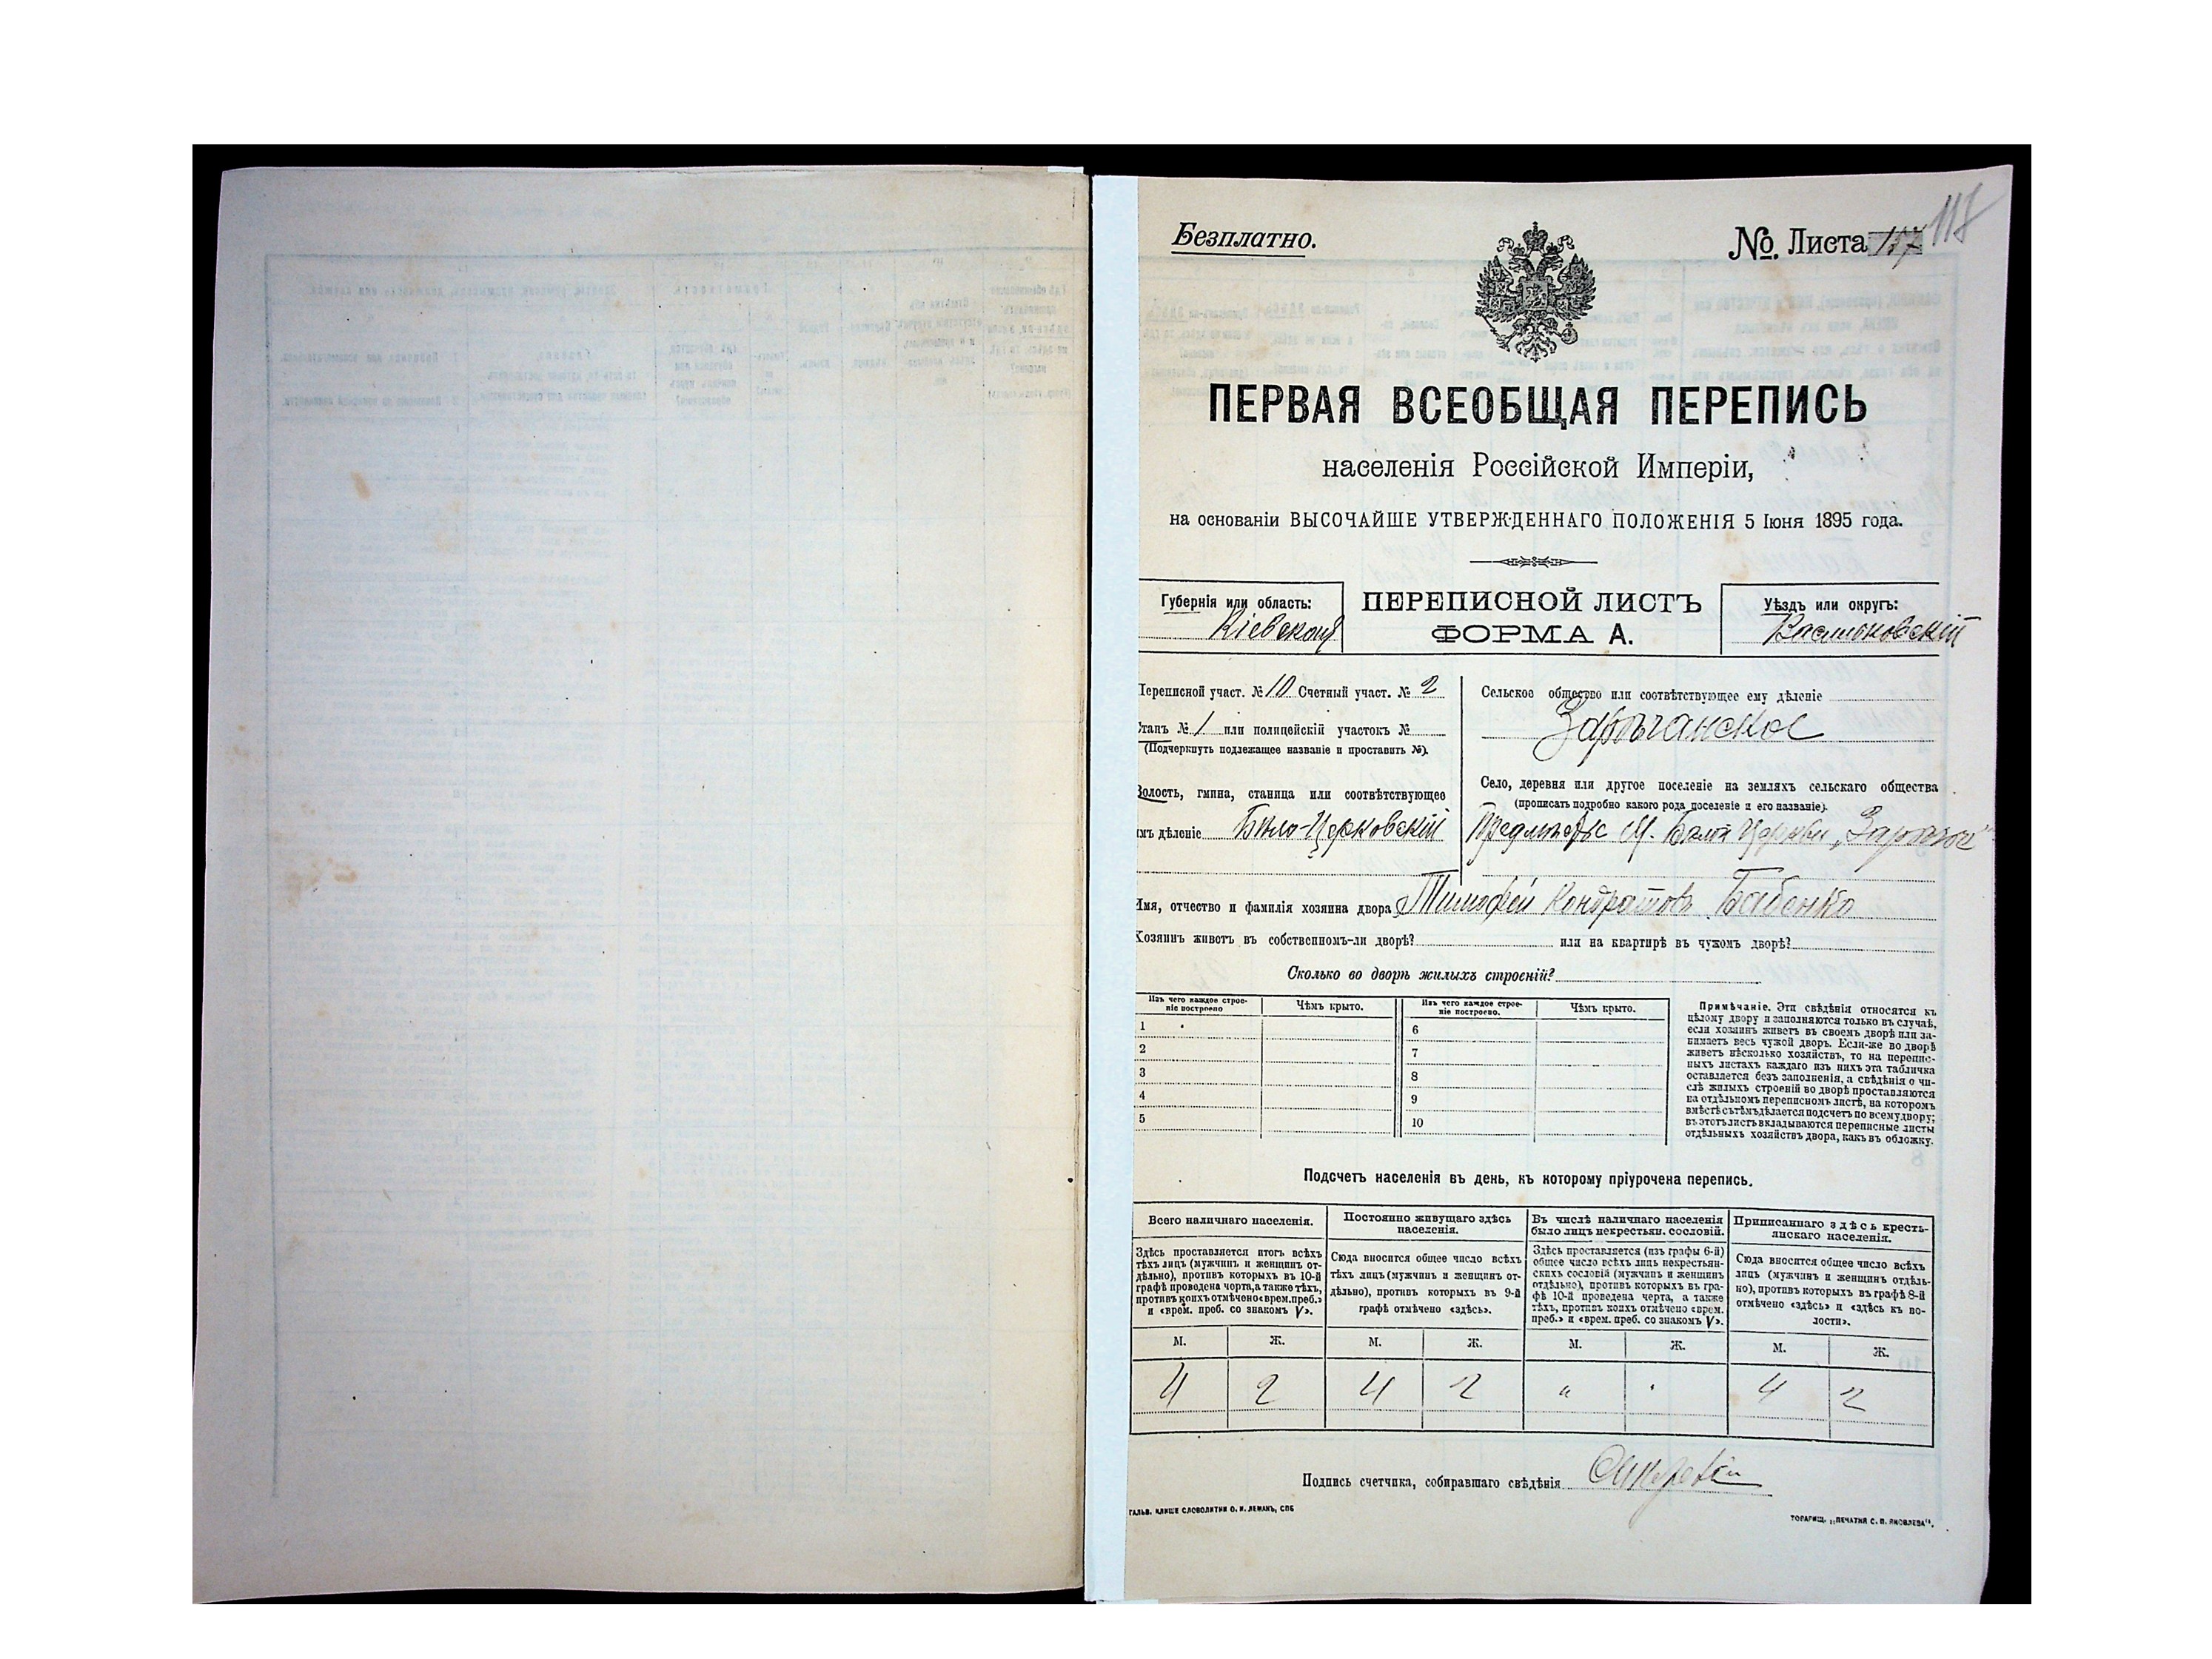 118
Безплатно.
№. Листа 117
ПЕРВАЯ ВСЕОБЩАЯ ПЕРЕПИСЬ
населенія Россійской Имперіи,
на основаніи ВЫСОЧАЙШЕ УТВЕРЖДЕННАГО ПОЛОЖЕНІЯ 5 Іюня 1895 года.
Губернія или область:
Кіевская
ПЕРЕПИСНОЙ ЛИСТЪ
ФОРМА А.
Уѣздъ или округъ:
Васильковскій
Переписной участ. № 10 Счетный участ. № 2
Станъ № 1 или полицейскій участокъ №
(Подчеркнуть подлежащее названіе и проставить №).
Волость, гмина, станица или соотвѣтствующее
имъ дѣленіе Бѣло-Церковскій
Сельское общество или соотвѣтствующее ему дѣленіе
Зарѣчанское
Село, деревня или другое поселеніе на земляхъ сельскаго общества
(прописать подробно какого рода поселеніе и его названіе).
Предмѣстье М. Белой Церкви
Имя, отчество и фамилія хозяина двора Тимофей Кондратовъ Бабенко
Хозяинъ животъ въ собственномъ-ли дворѣ? или на квартирѣ въ чужомъ дворѣ?
Сколько во дворѣ жилыхъ строеній?
Изъ чего каждое строе-
ніе построено
Чѣмъ крыто.
Изъ чего каждое строе-
ніе построено.
Чѣмъ крыто.
1
2
3
4
5
6
7
8
9
10
Примѣчаніе. Эти свѣдѣнія относятся къ
цѣлому двору и заполняются только въ случаѣ,
если хозяинъ живетъ въ своемъ дворѣ или за-
нимаетъ весь чужой дворъ. Если-же во дворѣ
живетъ нѣсколько хозяйствъ, то на перепис-
ныхъ листахъ каждаго изъ нихъ эта табличка
оставляется безъ заполненія, а свѣдѣнія о чи-
слѣ жилыхъ строеній во дворѣ проставляются
на отдѣльномъ переписномъ листѣ, на которомъ
вмѣстѣ съ тѣмъ дѣлается подсчетъ по всему двору;
въ этотъ листъ вкладываются переписные листы
отдѣльныхъ хозяйствъ двора, какъ въ обложку.
Подсчетъ населенія въ день, къ которому пріурочена перепись.
Всего наличнаго населенія.
Здѣсь проставляется итогъ всѣхъ
тѣхъ лицъ (мужчинъ и женщинъ от-
дѣльно), противъ которыхъ въ 10-й
графѣ проведена черта, а также тѣхъ,
противъ коихъ отмѣчено «врем. преб.»
и «врем. преб. со знакомъ V».
Постоянно живущаго здѣсь
населенія.
Сюда вносится общее число всѣхъ
тѣхъ лицъ (мужчинъ и женщинъ от-
дѣльно), противъ которыхъ въ 9-й
графѣ отмѣчено «здѣсь».
Въ числѣ наличнаго населенія
было лицъ некрестьян. сословій.
Здѣсь проставляется (изъ графы 6-й)
общее число всѣхъ лицъ некрестьян-
скихъ сословій (мужчинъ и женщинъ
отдѣльно), противъ которыхъ въ гра-
фѣ 10-й проведена черта, а также
тѣхъ, противъ коихъ отмѣчено «врем.
преб.» и «врем. преб. со знакомъ V».
Приписаннаго здѣсь кресть-
янскаго населенія.
Сюда вносится общее число всѣхъ
лицъ (мужчинъ и женщинъ отдѣль-
но), противъ которыхъ въ графѣ 8-й
отмѣчено «здѣсь» и «здѣсь къ во-
лости».
М. Ж. М. Ж. М. Ж. М. Ж.
4 2 4 2 " " 4 2
Подпись счетчика, собиравшаго свѣдѣнія
ГАЛЬВ. КЛИШЕ СЛОВОЛИТНИ О. И. ЛЕМАНЪ, СПБ
ТОВАРИЩ. „ПЕЧАТНЯ С. П. ЯКОВЛЕВА".